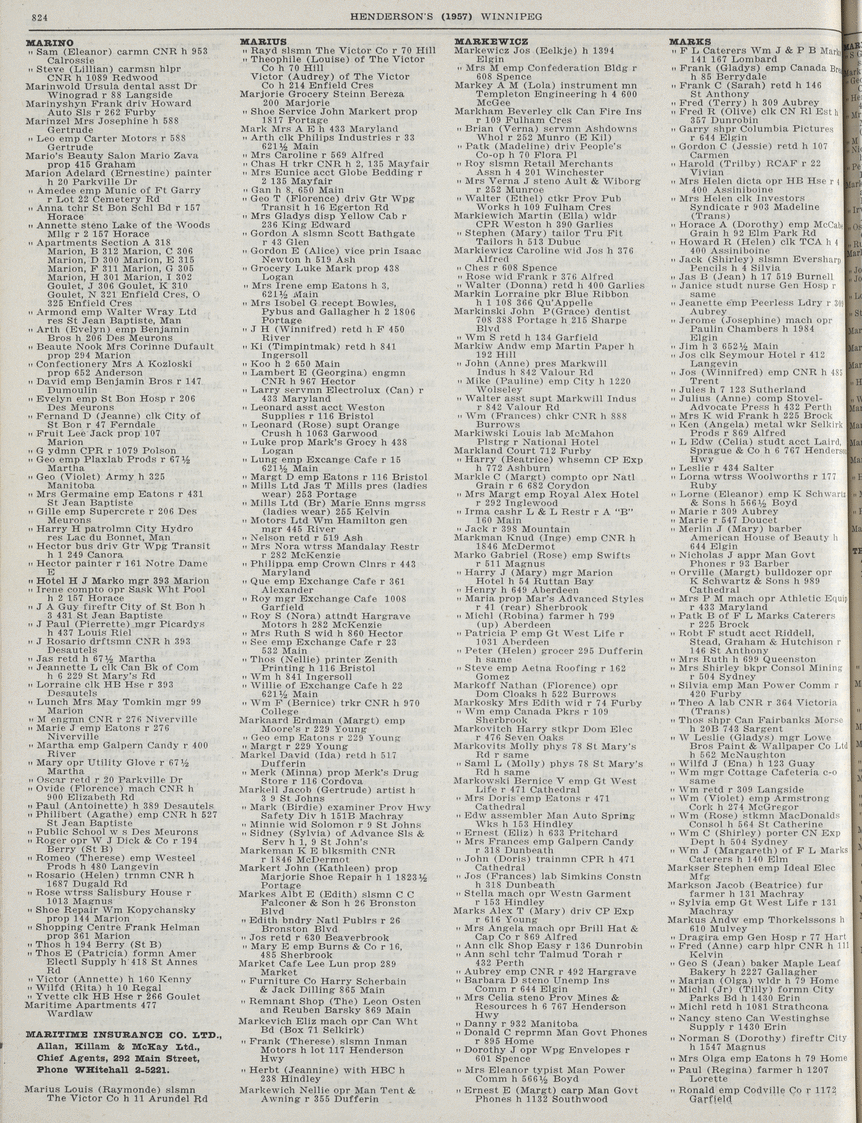 824
HENDERSON'S (1957) WINNIPEG
MARINO
" Sam (Eleanor) carmn CNR h 953
Calrossie
" Steve (Lillian) carmsn hlpr
CNR h 1089 Redwood
Marinwold Ursula dental asst Dr
Winograd r 88 Langside
Marinyshyn Frank driv Howard
Auto Sls r 262 Furby
Marinzel Mrs Josephine h 588
Gertrude
" Leo emp Carter Motors r 588
Gertrude
Mario's Beauty Salon Mario Zava
prop 415 Graham
Marion Adelard (Ernestine) painter
h 20 Parkville Dr
" Amedee emp Munic of Ft Garry
r Lot 22 Cemetery Rd
" Anna tchr St Bon Schl Bd r 157
Horace
" Annette steno Lake of the Woods
Mllg r 2 157 Horace
" Apartments Section A 318
Marion, B 312 Marion, C 306
Marion, D 300 Marion, E 315
Marion, F 311 Marion, G 305
Marion, H 301 Marion, I 302
Goulet, J 306 Goulet, K 310
Goulet, N 321 Enfield Cres, O
325 Enfield Cres
" Armond emp Walter Wray Ltd
res St Jean Baptiste, Man
" Arth (Evelyn) emp Benjamin
Bros h 206 Des Meurons
" Beaute Nook Mrs Corinne Dufault
prop 294 Marion
" Confectionery Mrs A Kozloski
prop 652 Anderson
" David emp Benjamin Bros r 147
Dumoulin
" Evelyn emp St Bon Hosp r 206
Des Meurons
" Fernand D (Jeanne) clk City of
St Bon r 47 Ferndale
" Fruit Lee Jack prop 107
Marion
" G ydmn CPR r 1079 Polson
" Geo emp Plaxlab Prods r 67½
Martha
" Geo (Violet) Army h 325
Manitoba
" Mrs Germaine emp Eatons r 431
St Jean Baptiste
" Gille emp Supercrete r 206 Des
Meurons
" Harry H patrolmn City Hydro
res Lac du Bonnet, Man
" Hector bus driv Gtr Wpg Transit
h 1 249 Canora
" Hector painter r 161 Notre Dame
E
" Hotel H J Marko mgr 393 Marion
" Irene compto opr Sask Wht Pool
h 2 157 Horace
" J A Guy fireftr City of St Bon h
3 431 St Jean Baptiste
" J Paul (Pierrette) mgr Picardys
h 437 Louis Riel
" J Rosario drftsmn CNR h 393
Desautels
" Jas retd h 67½ Martha
" Jeannette L clk Can Bk of Com
h 6 229 St Mary's Rd
" Lorraine clk HB Hse r 393
Desautels
" Lunch Mrs May Tomkin mgr 99
Marion
" M engmn CNR r 276 Niverville
" Marie J emp Eatons r 276
Niverville
" Martha emp Galpern Candy r 400
River
" Mary opr Utility Glove r 67½
Martha
" Oscar retd r 20 Parkville Dr
" Ovide (Florence) mach CNR h
900 Elizabeth Rd
" Paul (Antoinette) h 389 Desautels
" Philibert (Agathe) emp CNR h 527
St Jean Baptiste
" Public School w s Des Meurons
" Roger opr W J Dick & Co r 194
Berry (St B)
" Romeo (Therese) emp Westeel
Prods h 480 Langevin
" Rosario (Helen) trnmn CNR h
1687 Dugald Rd
" Rose wtrss Salisbury House r
1013 Magnus
" Shoe Repair Wm Kopychansky
prop 144 Marion
" Shopping Centre Frank Helman
prop 361 Marion
" Thos h 194 Berry (St B)
" Thos E (Patricia) formn Amer
Electl Supply h 418 St Annes
Rd
" Victor (Annette) h 160 Kenny
" Wilfd (Rita) h 10 Regal
" Yvette clk HB Hse r 266 Goulet
Maritime Apartments 477
Wardlaw
MARITIME INSURANCE CO. LTD.,
Allan, Killam & McKay Ltd.,
Chief Agents, 292 Main Street,
Phone WHitehall 2-5221.
Marius Louis (Raymonde) slsmn
The Victor Co h 11 Arundel Rd
MARIUS
" Rayd slsmn The Victor Co r 70 Hill
" Theophile (Louise) of The Victor
Co h 70 Hill
Victor (Audrey) of The Victor
Co h 214 Enfield Cres
Marjorie Grocery Steinn Bereza
200 Marjorie
" Shoe Service John Markert prop
1817 Portage
Mark Mrs A E h 433 Maryland
" Arth clk Philips Industries r 33
621½ Main
" Mrs Caroline r 569 Alfred
" Chas H trkr CNR h 2, 135 Mayfair
" Mrs Eunice acct Globe Bedding r
2 135 Mayfair
" Gan h 8, 650 Main
" Geo T (Florence) driv Gtr Wpg
Transit h 16 Egerton Rd
" Mrs Gladys disp Yellow Cab r
236 King Edward
" Gordon A slsmn Scott Bathgate
r 43 Glen
" Gordon E (Alice) vice prin Isaac
Newton h 519 Ash
" Grocery Luke Mark prop 438
Logan
" Mrs Irene emp Eatons h 3,
621½ Main
" Mrs Isobel G recept Bowles,
Pybus and Gallagher h 2 1806
Portage
" J H (Winnifred) retd h F 450
River
" Ki (Timpintmak) retd h 841
Ingersoll
" Koo h 2 650 Main
" Lambert E (Georgina) engmn
CNR h 967 Hector
" Larry servmn Electrolux (Can) r
433 Maryland
" Leonard asst acct Weston
Supplies r 116 Bristol
" Leonard (Rose) supt Orange
Crush h 1063 Garwood
" Luke prop Mark's Grocy h 438
Logan
" Lung emp Excange Cafe r 15
621½ Main
" Margt D emp Eatons r 116 Bristol
" Mills Ltd Jas T Mills pres (ladies
wear) 253 Portage
" Mills Ltd (Br) Marie Enns mgrss
(ladies wear) 255 Kelvin
" Motors Ltd Wm Hamilton gen
mgr 445 River
" Nelson retd r 519 Ash
" Mrs Nora wtrss Mandalay Restr
r 282 McKenzie
" Philippa emp Crown Clnrs r 443
Maryland
" Que emp Exchange Cafe r 361
Alexander
" Roy mgr Exchange Cafe 1008
Garfield
" Roy S (Nora) attndt Hargrave
Motors h 282 McKenzie
" Mrs Ruth S wid h 860 Hector
" See emp Exchange Cafe r 23
532 Main
" Thos (Nellie) printer Zenith
Printing h 116 Bristol
" Wm h 841 Ingersoll
" Willie of Exchange Cafe h 22
621½ Main
" Wm F (Bernice) trkr CNR h 970
College
Markaard Erdman (Margt) emp
Moore's r 229 Young
" Geo emp Eatons r 229 Young
" Margt r 229 Young
Markel David (Ida) retd h 517
Dufferin
" Merk (Minna) prop Merk's Drug
Store r 116 Cordova
Markell Jacob (Gertrude) artist h
3 9 St Johns
" Mark (Birdie) examiner Prov Hwy
Safety Div h 151B Machray
" Minnie wid Solomon r 9 St Johns
" Sidney (Sylvia) of Advance Sls &
Serv h 1, 9 St John's
Markeman K E blksmith CNR
r 1846 McDermot
Markert John (Kathleen) prop
Marjorie Shoe Repair h 1 1823½
Portage
Markes Albt E (Edith) slsmn C C
Falconer & Son h 26 Bronston
Blvd
" Edith bndry Natl Publrs r 26
Bronston Blvd
" Jos retd r 630 Beaverbrook
" Mary E emp Burns & Co r 16,
485 Sherbrook
Market Cafe Lee Lun prop 289
Market
" Furniture Co Harry Scherbain
& Jack Dilling 865 Main
" Remnant Shop (The) Leon Osten
and Reuben Barsky 869 Main
Markevich Eliz mach opr Can Wht
Bd (Box 71 Selkirk)
" Frank (Therese) slsmn Inman
Motors h lot 117 Henderson
Hwy
" Herbt (Jeannine) with HBC h
238 Hindley
Markewich Nellie opr Man Tent &
Awning r 355 Dufferin
MARKEWICZ
Markewicz Jos (Eelkje) h 1394
Elgin
" Mrs M emp Confederation Bldg r
608 Spence
Markey A M (Lola) instrument mn
Templeton Engineering h 4 600
McGee
Markham Beverley clk Can Fire Ins
r 109 Fulham Cres
" Brian (Verna) servmn Ashdowns
Whol r 252 Munro (E Kil)
" Patk (Madeline) driv People's
Co-op h 70 Flora Pl
" Roy slsmn Retail Merchants
Assn h 4 201 Winchester
" Mrs Verna J steno Ault & Wiborg
r 252 Munroe
" Walter (Ethel) ctkr Prov Pub
Works h 109 Fulham Cres
Markiewich Martin (Ella) wldr
CPR Weston h 390 Garlies
" Stephen (Mary) tailor Tru Fit
Tailors h 513 Dubuc
Markiewicz Caroline wid Jos h 376
Alfred
" Ches r 608 Spence
" Rose wid Frank r 376 Alfred
" Walter (Donna) retd h 400 Garlies
Markin Lorraine pkr Blue Ribbon
h 1 108 366 Qu'Appelle
Markinski John P(Grace) dentist
708 388 Portage h 215 Sharpe
Blvd
" Wm S retd h 134 Garfield
Markiw Andw emp Martin Paper h
192 Hill
" John (Anne) pres Markwill
Indus h 842 Valour Rd
" Mike (Pauline) emp City h 1220
Wolseley
" Walter asst supt Markwill Indus
r 842 Valour Rd
" Wm (Frances) chkr CNR h 888
Burrows
Markiwski Louis lab McMahon
Plstrg r National Hotel
Markland Court 712 Furby
" Harry (Beatrice) whsemn CP Exp
h 772 Ashburn
Markle C (Margt) compto opr Natl
Grain r 6 682 Corydon
" Mrs Margt emp Royal Alex Hotel
r 292 Inglewood
" Irma cashr L & L Restr r A "B"
160 Main
" Jack r 398 Mountain
Markman Knud (Inge) emp CNR h
1846 McDermot
Marko Gabriel (Rose) emp Swifts
r 511 Magnus
" Harry J (Mary) mgr Marion
Hotel h 54 Ruttan Bay
" Henry h 649 Aberdeen
" Maria prop Mar's Advanced Styles
r 41 (rear) Sherbrook
" Michl (Robina) farmer h 799
(up) Aberdeen
" Patricia P emp Gt West Life r
1031 Aberdeen
" Peter (Helen) grocer 295 Dufferin
h same
" Steve emp Aetna Roofing r 162
Gomez
Markoff Nathan (Florence) opr
Dom Cloaks h 522 Burrows
Markosky Mrs Edith wid r 74 Furby
" Wm emp Canada Pkrs r 109
Sherbrook
Markovitch Harry stkpr Dom Elec
r 476 Seven Oaks
Markovits Molly phys 78 St Mary's
Rd r same
" Saml L (Molly) phys 78 St Mary's
Rd h same
Markowski Bernice V emp Gt West
Life r 471 Cathedral
" Mrs Doris emp Eatons r 471
Cathedral
" Edw assembler Man Auto Spring
Wks h 153 Hindley
" Ernest (Eliz) h 633 Pritchard
" Mrs Frances emp Galpern Candy
r 318 Dunbeath
" John (Doris) trainmn CPR h 471
Cathedral
" Jos (Frances) lab Simkins Constn
h 318 Dunbath
" Stella mach opr Westn Garment
r 153 Hindley
Marks Alex T (Mary) driv CP Exp
r 616 Young
" Mrs Angela mach opr Brill Hat &
Cap Co r 869 Alfred
" Ann clk Shop Easy r 136 Dunrobin
" Ann schl tchr Talmud Torah r
432 Perth
" Aubrey emp CNR r 492 Hargrave
" Barbara D steno Unemp Ins
Comm r 644 Elgin
" Mrs Celia steno Prov Mines &
Resources h 6 767 Henderson
Hwy
" Danny r 932 Manitoba
" Donald C reprmn Man Govt Phones
r 895 Home
" Dorothy J opr Wpg Envelopes r
601 Spence
" Mrs Eleanor typist Man Power
Comm h 566½ Boyd
" Ernest E (Margt) carp Man Govt
Phones h 1132 Southwood
MARKS
" F L Caterers Wm J & P B Marks
141 167 Lombard
" Frank (Gladys) emp Canada
h 85 Berrydale
" Frank C (Sarah) retd h 146
St Anthony
" Fred (Terry) h 309 Aubrey
" Fred R (Olive) clk CN Rl Est h
357 Dunrobin
" Garry shpr Columbia Pictures
r 644 Elgin
" Gordon C (Jessie) retd h 107
Carmen
" Harold (Trilby) RCAF r 22
Vivian
" Mrs Helen dicta opr HB Hse r
400 Assiniboine
" Mrs Helen clk Investors
Syndicate r 903 Madeline
(Trans)
" Horace A (Dorothy) emp
Grain h 92 Elm Park Rd
" Howard R (Helen) clk TCA h 4
400 Assiniboine
" Jack (Shirley) slsmn Eversharp
Pencils h 4 Silvia
" Jas B (Jean) h 17 519 Burnell
" Janice studt nurse Gen Hosp r
same
" Jeanette emp Peerless Ldry r
Aubrey
" Jerome (Josephine) mach opr
Paulin Chambers h 1984
Elgin
" Jim h 3 652½ Main
" Jos clk Seymour Hotel r 412
Langevin
" Jos (Winnifred) emp CNR h
Trent
" Jules h 7 123 Sutherland
" Julius (Anne) comp Stovel-
Advocate Press h 432 Perth
" Mrs K wid Frank h 225 Brock
" Ken (Angela) metal wkr Selkirk
Prods r 869 Alfred
" L Edw (Celia) studt acct Laird,
Sprague & Co h 6 767 Henderson
Hwy
" Leslie r 434 Salter
" Lorna wtrss Woolworths r 177
Ruby
" Lorne (Eleanor) emp K Schwartz
& Sons h 566½ Boyd
" Marie r 309 Aubrey
" Marie r 547 Doucet
" Merlin J (Mary) barber
American House of Beauty h
644 Elgin
" Nicholas J appr Man Govt
Phones r 93 Barber
" Orville (Margt) bulldozer opr
K Schwartz & Sons h 989
Cathedral
" Mrs P M mach opr Athletic Equip
r 433 Maryland
" Patk B of F L Marks Caterers
r 225 Brock
" Robt F studt acct Riddell,
Stead, Graham & Hutchison r
146 St Anthony
" Mrs Ruth h 699 Queenston
" Mrs Shirley bkpr Consol Mining
r 504 Sydney
" Silvia emp Man Power Comm r
420 Furby
" Theo A lab CNR r 364 Victoria
(Trans)
" Thos shpr Can Fairbanks Morse
h 20B 743 Sargent
" W Leslie (Gladys) mgr Lowe
Bros Paint & Wallpaper Co Ltd
h 562 McNaughton
" Wilfd J (Ena) h 123 Guay
" Wm mgr Cottage Cafeteria c-o
same
" Wm retd r 309 Langside
" Wm (Violet) emp Armstrong
Cork h 274 McGregor
" Wm (Rose) stkmn MacDonalds
Consol h 564 St Catherine
" Wm C (Shirley) porter CN Exp
Dept h 504 Sydney
" Wm J (Margareth) of F L Marks
Caterers h 140 Elm
Markser Stephen emp Ideal Elec
Mfg
Markson Jacob (Beatrice) fur
farmer h 131 Machray
" Sylvia emp Gt West Life r 131
Machray
Markus Andw emp Thorkelssons h
610 Mulvey
" Dragira emp Gen Hosp r 77 Hart
" Fred (Anne) carp hlpr CNR h 111
Kelvin
" Geo S (Jean) baker Maple Leaf
Bakery h 2227 Gallagher
" Marian (Olga) wldr h 79 Home
" Michl (Jr) (Tilly) formn City
Parks Bd h 1430 Erin
" Michl retd h 1081 Strathcona
" Nancy steno Can Westinghse
Supply r 1430 Erin
" Norman S (Dorothy) fireftr City
h 1547 Magnus
" Mrs Olga emp Eatons h 79 Home
" Paul (Regina) farmer h 1207
Lorette
" Ronald emp Codville Co r 1172
Garfield